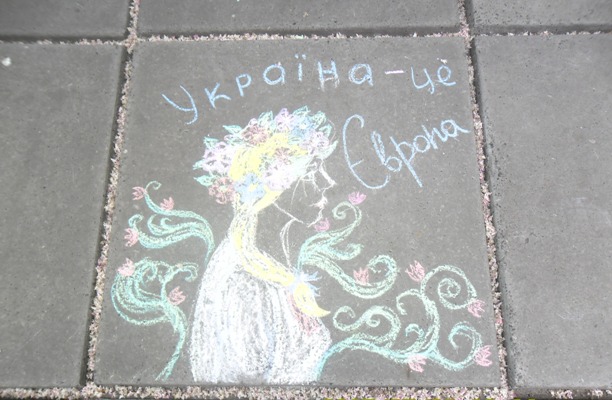 Україна - це
Європа